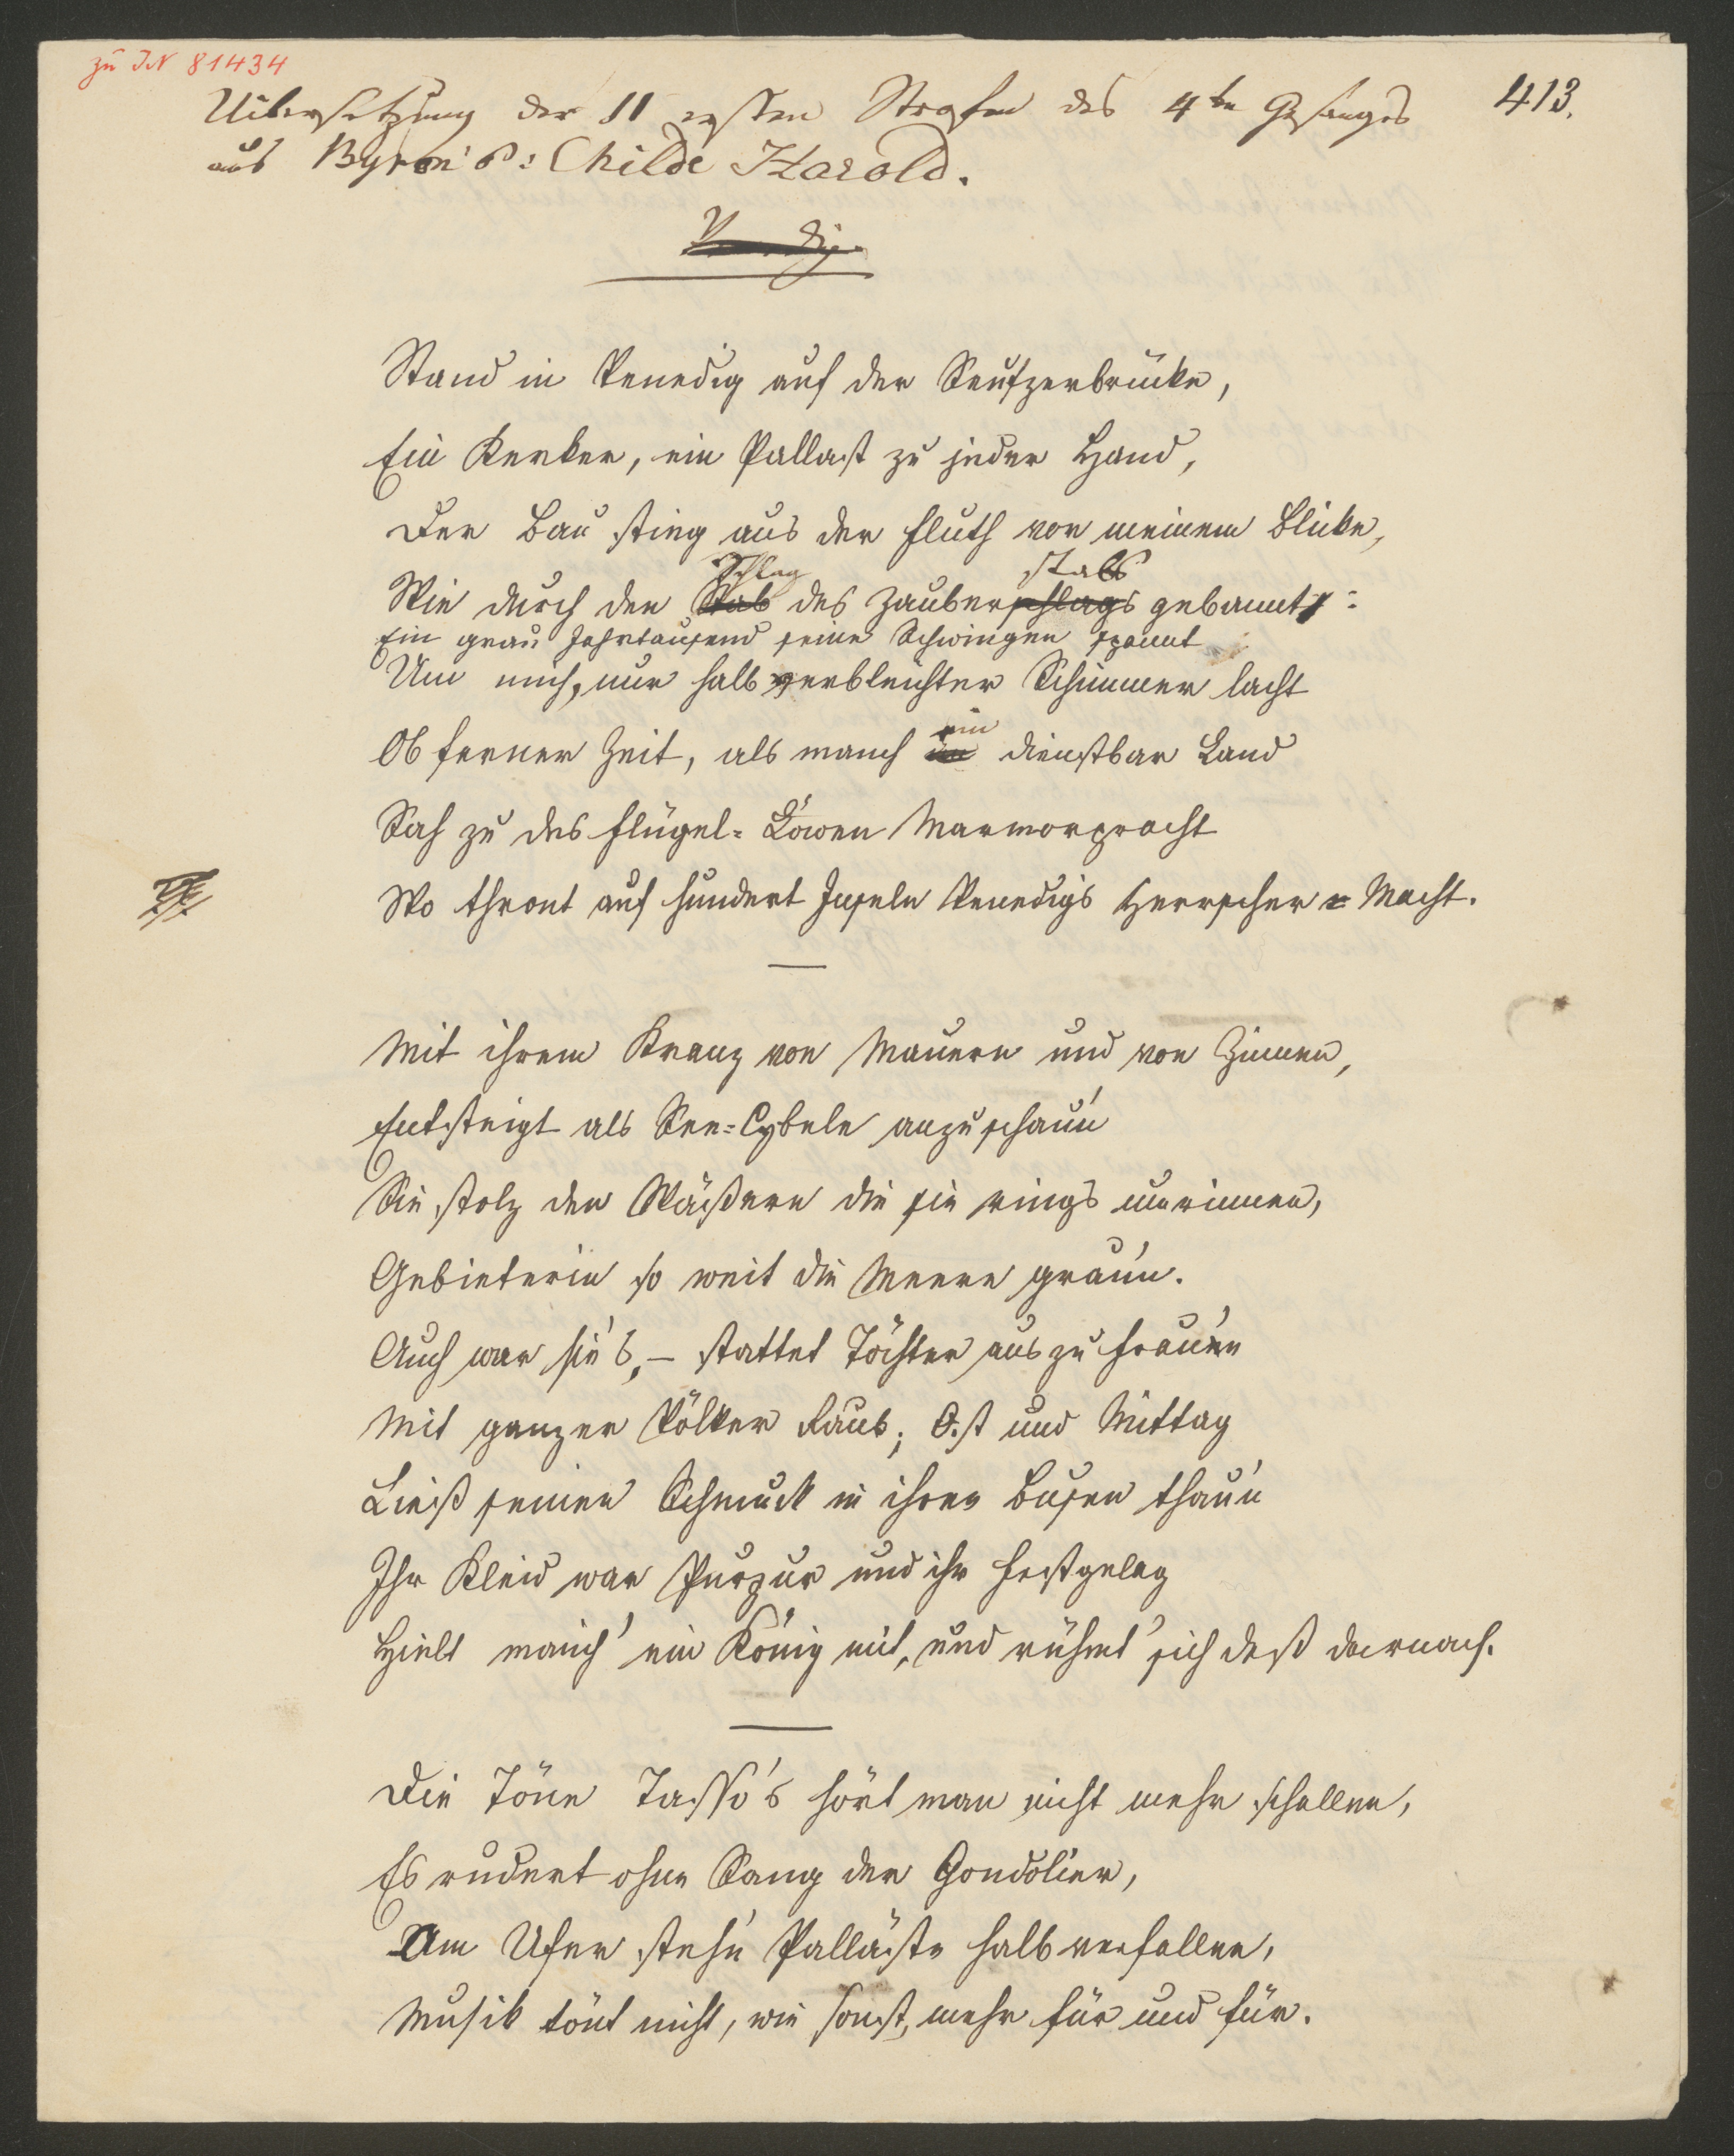 zu IN 81434
413.
Uibersetzung der 11 ersten Strofen des 4ten Gesanges
aus Byron's: Childe Harold.
Venedig.
Stand in Venedig auf der Seufzerbrücke,
Ein Kerker, ein Pallast zu jeder Hand,
Der Bau stieg aus der Fluth vor meinem Blicke,
Schlag stabs
Wie durch den Stab des Zauberschlags gebannt:
Ein grau Jahrtausend seine Schwingen spannt
Um mich, nur halb verbleichter Schimmer lacht
ein
Ob ferner Zeit, als manch dienstbar Land
Sah zu des Flügel-Löwen Marmorpracht
Wo thront auf hundert Inseln Venedigs Herrscher-Macht.
Mit ihrem Kranz von Mauern und von Zinnen,
Entsteigt als See-Cybele anzuschaun'
Sie stolz den Wäßern die sie rings umrinnen,
Gebieterin so weit die Meere graun'.
Auch war sie's, – stattet Töchter aus zu Frauen
Mit ganzer Völker Raub; Ost und Mittag
Ließ seinen Schmuck in ihren Busen thau'n
Ihr Kleid war Purpur und ihr Festgelag
Hielt manch' ein König mit, und rühmt' sich deß darnach.
Die Töne Tasso's hört man nicht mehr schallen,
Es rudert ohne Sang der Gondolier,
Am Ufer steh'n Palläste halb verfallen,
Musik tönt nicht, wie sonst, mehr für und für.